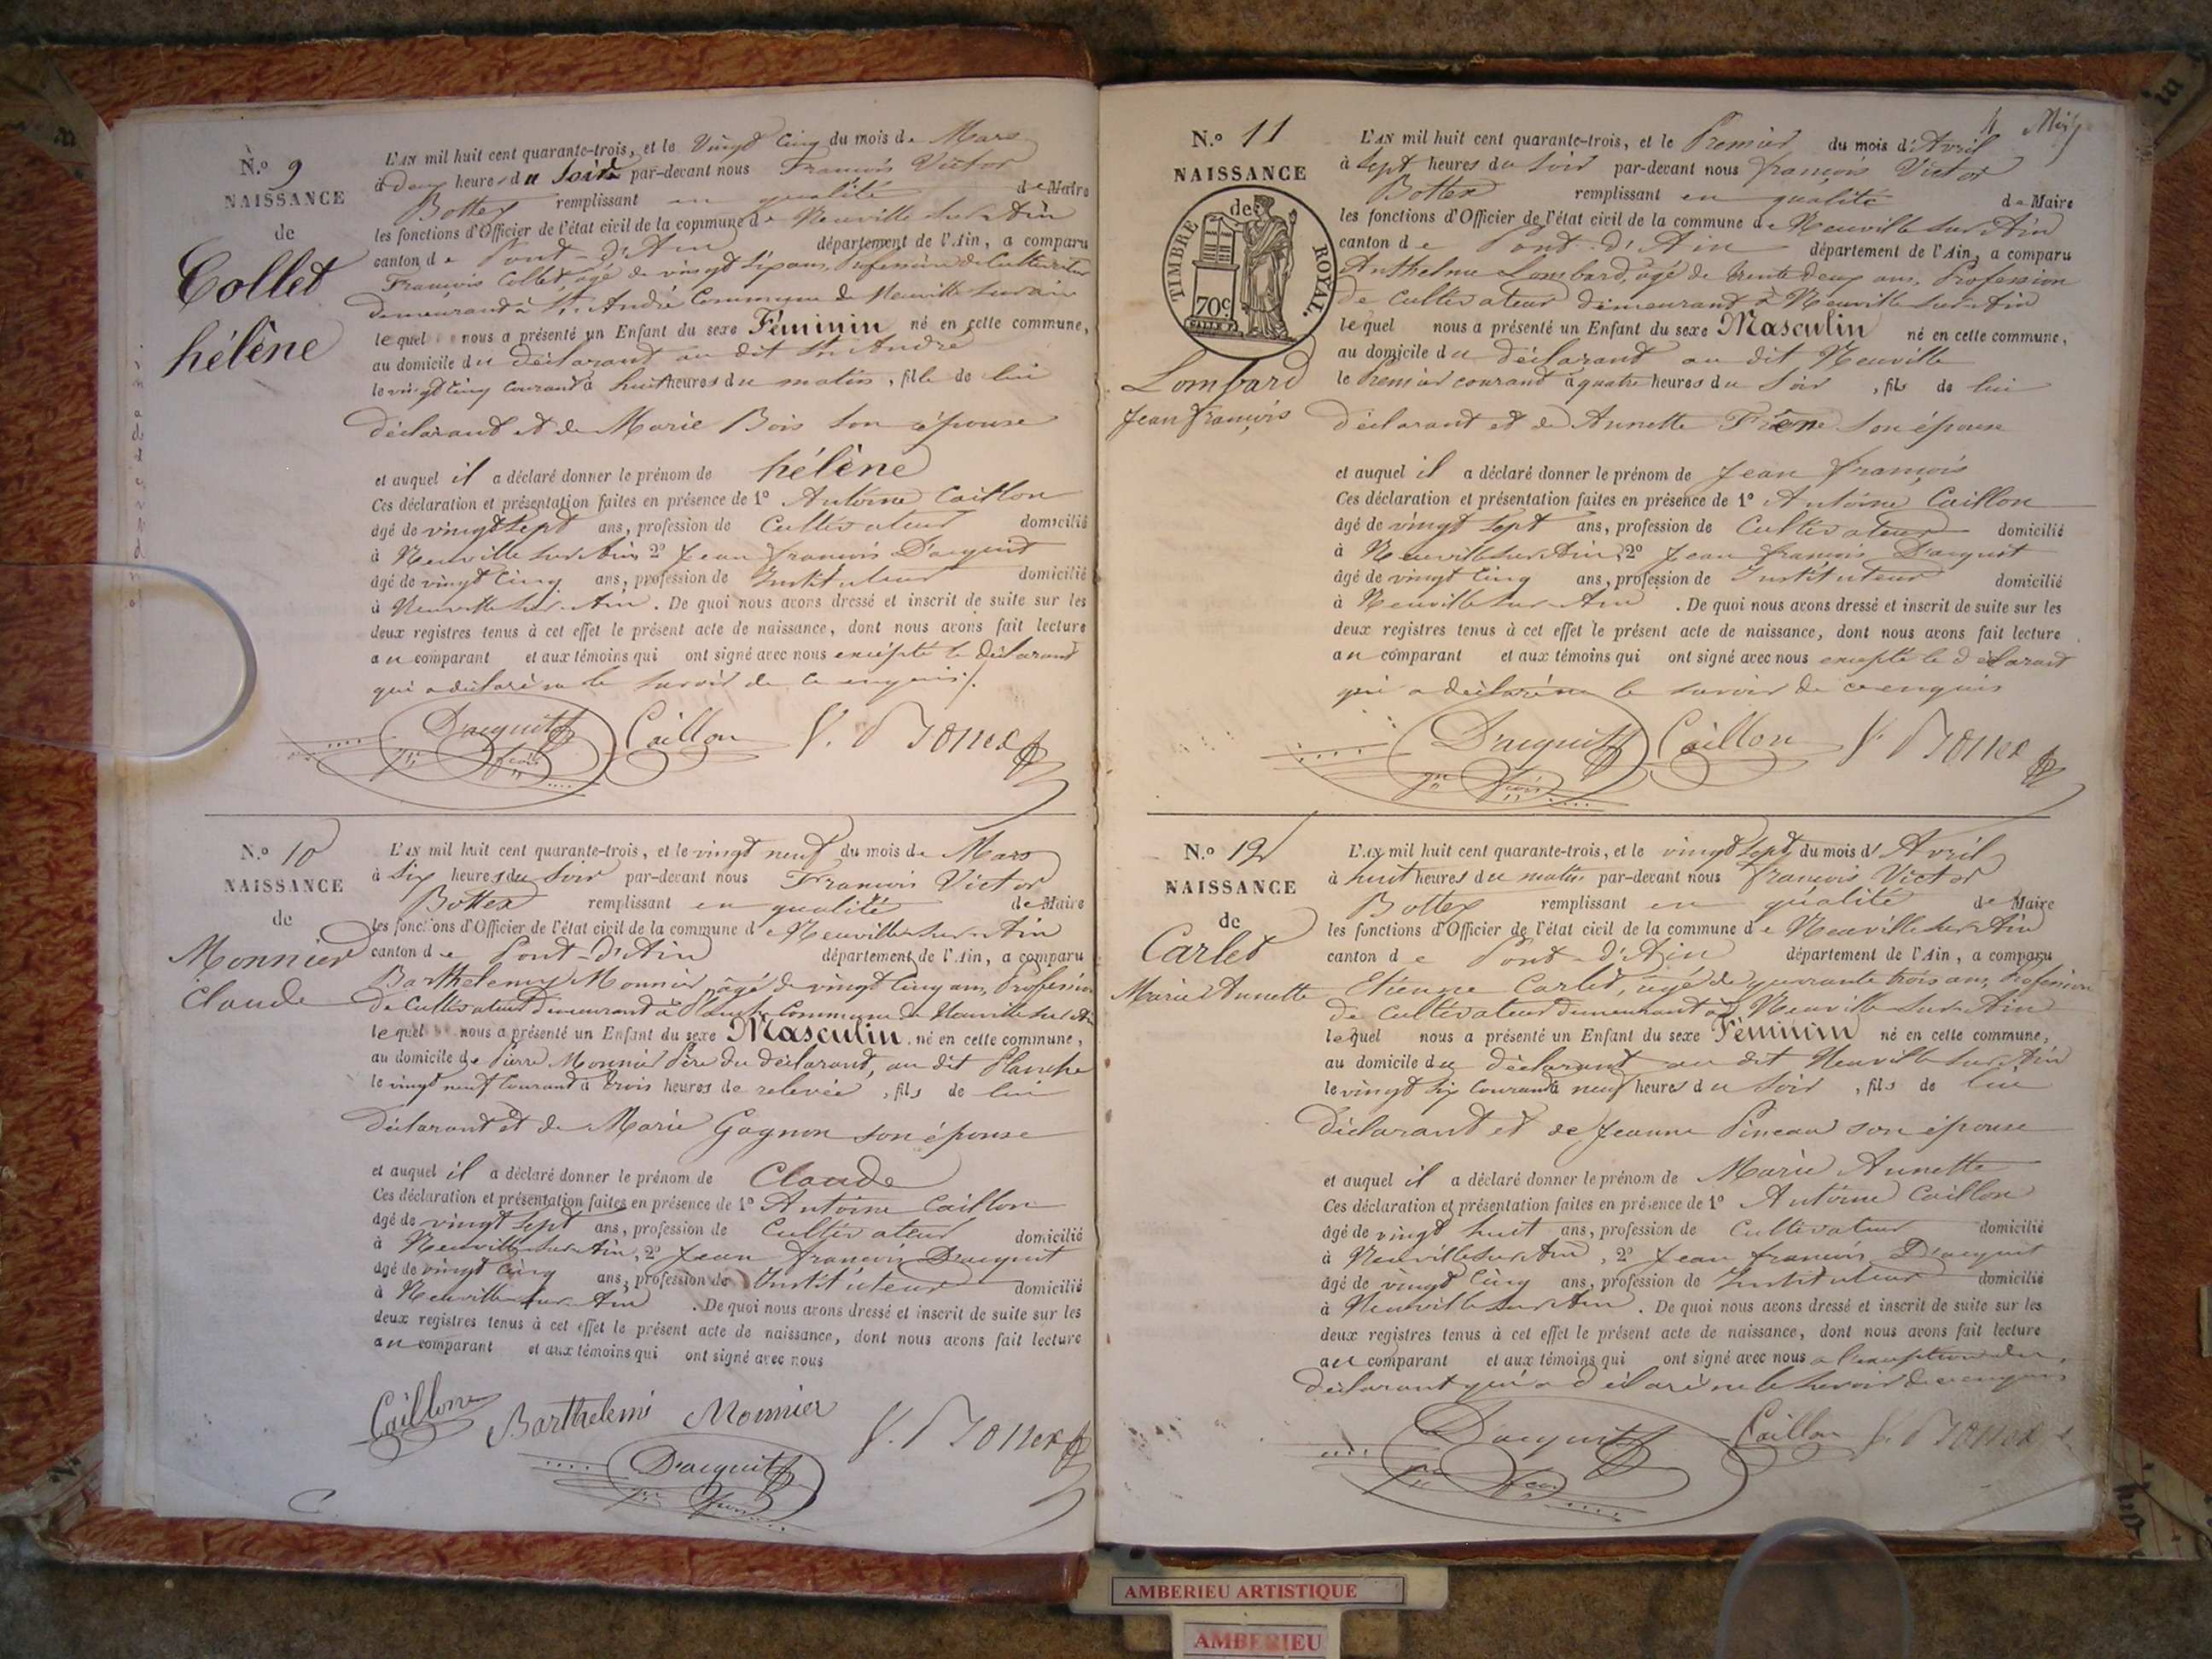 N.º 9
NAISSANCE
de
Collet
hélène
L'AN mil huit cent quarante-trois, et le Vingt Cinq du mois de Mars
à deux heures du Soir par-devant nous François Victor
Bottex remplissant en qualité de Maire
les fonctions d'Officier de l'état civil de la commune de Neuville sur Ain
canton de Pont-d'Ain département de l'Ain, a comparu
François Collet, âgé de vingt six ans, Profession de Cultivateur
demeurant à St. André Commune de Neuville sur ain
lequel nous a présenté un Enfant du sexe Féminin né en cette commune,
au domicile du déclarant au dit St. André
le vingt cinq courant à huit heures du matin, fille de lui
déclarant et de Marie Bois son épouse
et auquel il a déclaré donner le prénom de hélène
Ces déclaration et présentation faites en présence de 1º Antoine Caillon
âgé de vingt sept ans, profession de Cultivateur domicilié
à Neuville sur Ain 2º Jean françois Dacquit
âgé de vingt Cinq ans, profession de Instituteur domicilié
à Neuville sur Ain. De quoi nous avons dressé et inscrit de suite sur les
deux registres tenus à cet effet le présent acte de naissance, dont nous avons fait lecture
au comparant et aux témoins qui ont signé avec nous excepté le déclarant
qui a déclaré ne le savoir de ce enquis/.
Dacquit Caillon V. Bottex
N.º 10
NAISSANCE
de
Monnier
Claude
L'AN mil huit cent quarante-trois, et le vingt neuf du mois de Mars
à Six heures du Soir par-devant nous François Victor
Bottex remplissant en qualité de Maire
les fonctions d'Officier de l'état civil de la commune de Neuville sur Ain
canton de Pont-d'Ain département de l'Ain, a comparu
Barthelemy Monnier, âgé de vingt Cinq ans, Profession
de Cultivateur demeurant à Planche Commune de Neuville sur Ain
lequel nous a présenté un Enfant du sexe Masculin né en cette commune,
au domicile de Pierre Monnier Père du déclarant, au dit Planche
le vingt neuf Courant à trois heures de relevée, fils de lui
déclarant et de Marie Gagnon son épouse
et auquel il a déclaré donner le prénom de Claude
Ces déclaration et présentation faites en présence de 1º Antoine Caillon
âgé de vingt sept ans, profession de Cultivateur domicilié
à Neuville sur Ain, 2º Jean françois Dacquit
âgé de vingt Cinq ans, profession de Instituteur domicilié
à Neuville sur Ain. De quoi nous avons dressé et inscrit de suite sur les
deux registres tenus à cet effet le présent acte de naissance, dont nous avons fait lecture
au comparant et aux témoins qui ont signé avec nous
Caillon Barthelemi Monnier V. Bottex
Dacquit
4
N.º 11
NAISSANCE
de
TIMBRE ROYAL.
70c
Lombard
Jean françois
L'AN mil huit cent quarante-trois, et le Premier du mois d'Avril
à Sept heures du Soir par-devant nous françois Victor
Bottex remplissant en qualité de Maire
les fonctions d'Officier de l'état civil de la commune de Neuville sur Ain
canton de Pont-d'Ain département de l'Ain, a comparu
Anthelme Lombard, âgé de trente deux ans, Profession
de Cultivateur demeurant à Neuville sur Ain
lequel nous a présenté un Enfant du sexe Masculin né en cette commune,
au domicile du déclarant au dit Neuville
le Premier courant à quatre heures du Soir, fils de lui
déclarant et de Annette Frêne son épouse
et auquel il a déclaré donner le prénom de Jean françois
Ces déclaration et présentation faites en présence de 1º Antoine Caillon
âgé de vingt sept ans, profession de Cultivateur domicilié
à Neuville sur Ain 2º Jean françois Dacquit
âgé de vingt Cinq ans, profession de Instituteur domicilié
à Neuville sur Ain. De quoi nous avons dressé et inscrit de suite sur les
deux registres tenus à cet effet le présent acte de naissance, dont nous avons fait lecture
au comparant et aux témoins qui ont signé avec nous excepté le déclarant
qui a déclaré ne le savoir de ce enquis
Dacquit Caillon V. Bottex
N.º 12
NAISSANCE
de
Carlet
Marie Annette
L'AN mil huit cent quarante-trois, et le vingt sept du mois d'Avril
à huit heures du matin par-devant nous françois Victor
Bottex remplissant en qualité de Maire
les fonctions d'Officier de l'état civil de la commune de Neuville sur Ain
canton de Pont-d'Ain département de l'Ain, a comparu
Etienne Carlet, âgé de quarante trois ans, Profession
de Cultivateur demeurant à Neuville sur Ain
lequel nous a présenté un Enfant du sexe Féminin né en cette commune,
au domicile du déclarant au dit Neuville sur Ain
le vingt six Courant à neuf heures du Soir, fils de lui
déclarant et de Jeanne Pineau son épouse
et auquel il a déclaré donner le prénom de Marie Annette
Ces déclaration et présentation faites en présence de 1º Antoine Caillon
âgé de vingt huit ans, profession de Cultivateur domicilié
à Neuville sur Ain, 2º Jean françois Dacquit
âgé de vingt Cinq ans, profession de Instituteur domicilié
à Neuville sur Ain. De quoi nous avons dressé et inscrit de suite sur les
deux registres tenus à cet effet le présent acte de naissance, dont nous avons fait lecture
au comparant et aux témoins qui ont signé avec nous à l'exception du
déclarant qui a déclaré ne le savoir de ce enquis
Dacquit Caillon V. Bottex
AMBERIEU ARTISTIQUE
AMBERIEU